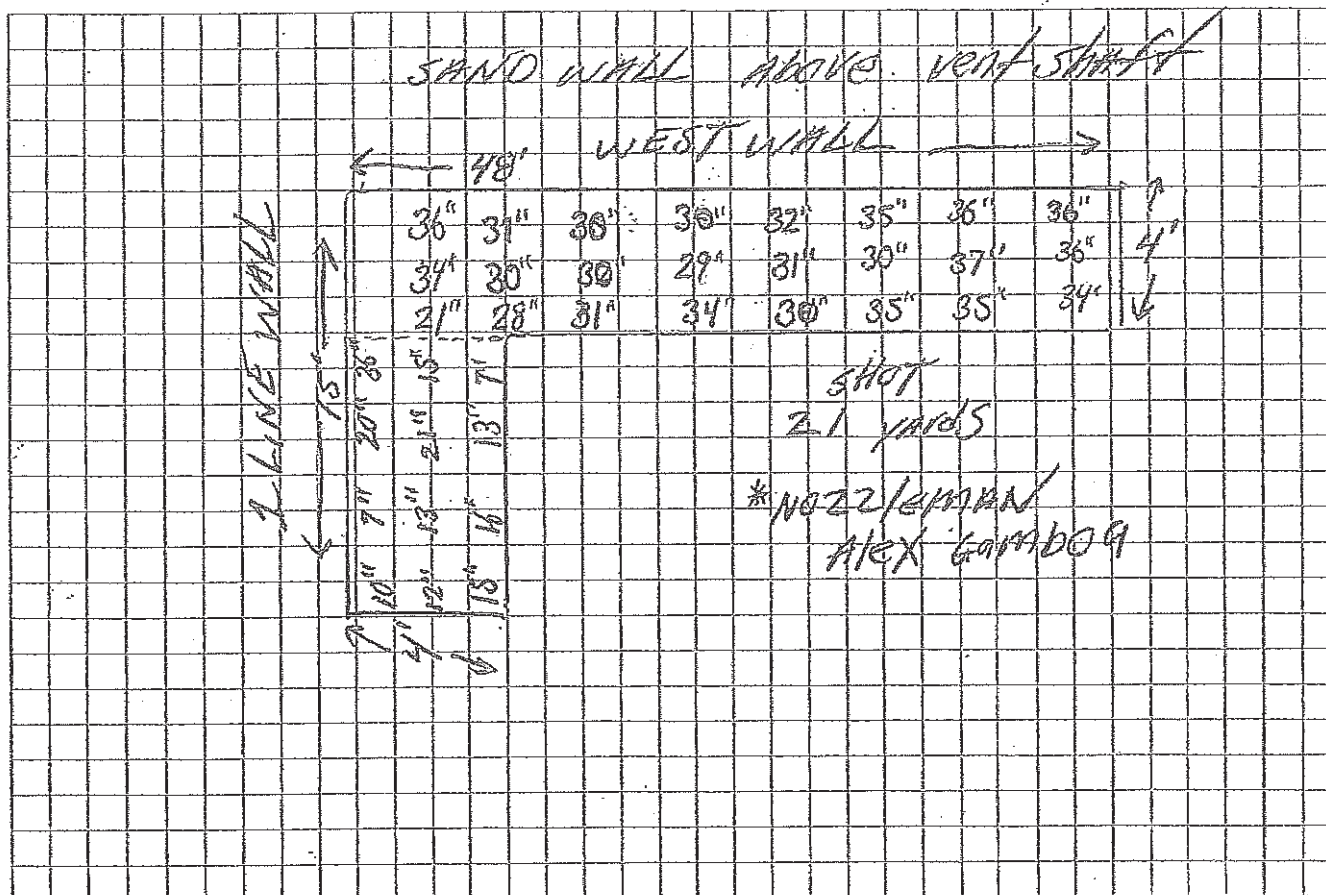 SAND WALL Above vent shaft
WEST WALL
48'
36" 31" 30" 30" 32" 35" 36" 36"
34" 30" 30" 29" 31" 30" 37" 36"
21" 28" 31" 34" 30" 35" 35" 34"
4'
1 LINE WALL
15'
10" 7" 20" 36"
12" 13" 21" 15"
15" 13" 7"
4'
SHOT
21 yards
*NOZZleMAN
Alex Gamboa